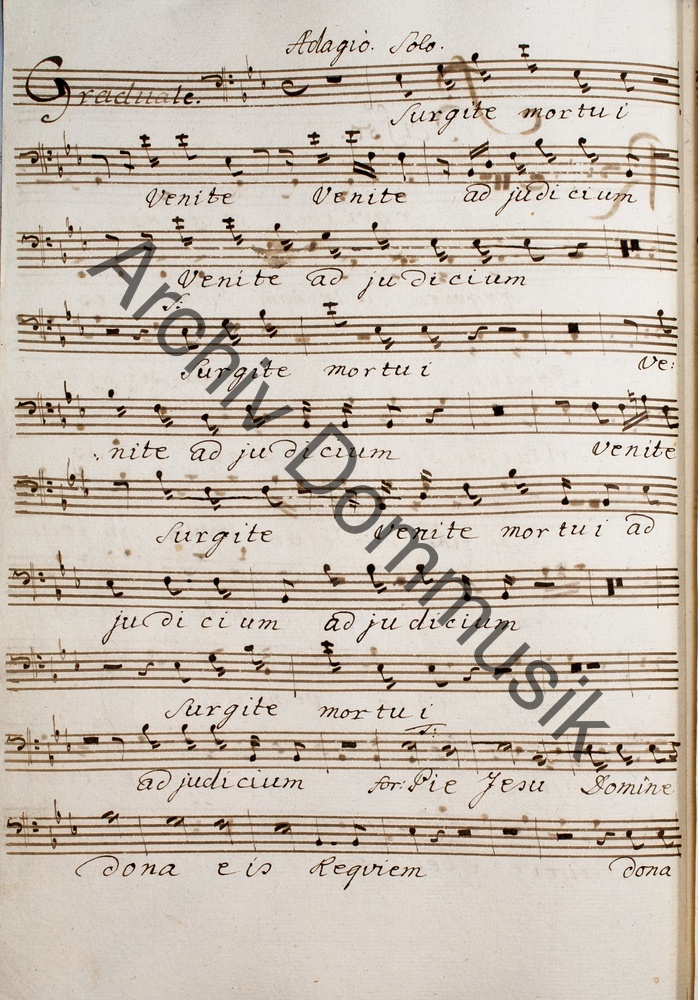 Adagio. Solo.
Graduale.
Surgite mortui
Venite Venite ad judicium
Venite ad judicium
S:
Surgite mortui Ve:
nite ad judicium Venite
Surgite Venite mortui ad
judicium ad judicium
Surgite mortui
T:
ad judicium for: Pie Jesu Domine
dona eis Requiem dona
Archiv Dommusik